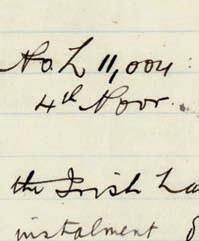 No. L 11,004
4th Novr.
the Irish La
instalment